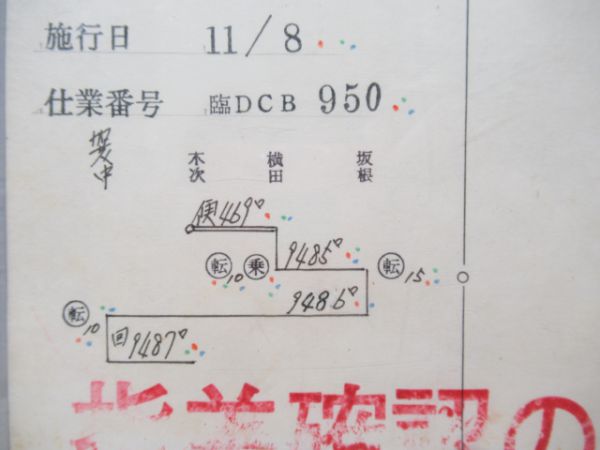 施行日 11/8
仕業番号 臨DCB 950
木次 横田 坂根
便469D
転10 乗 9485D 転15
9486D
転10
回9487D
指差確認の